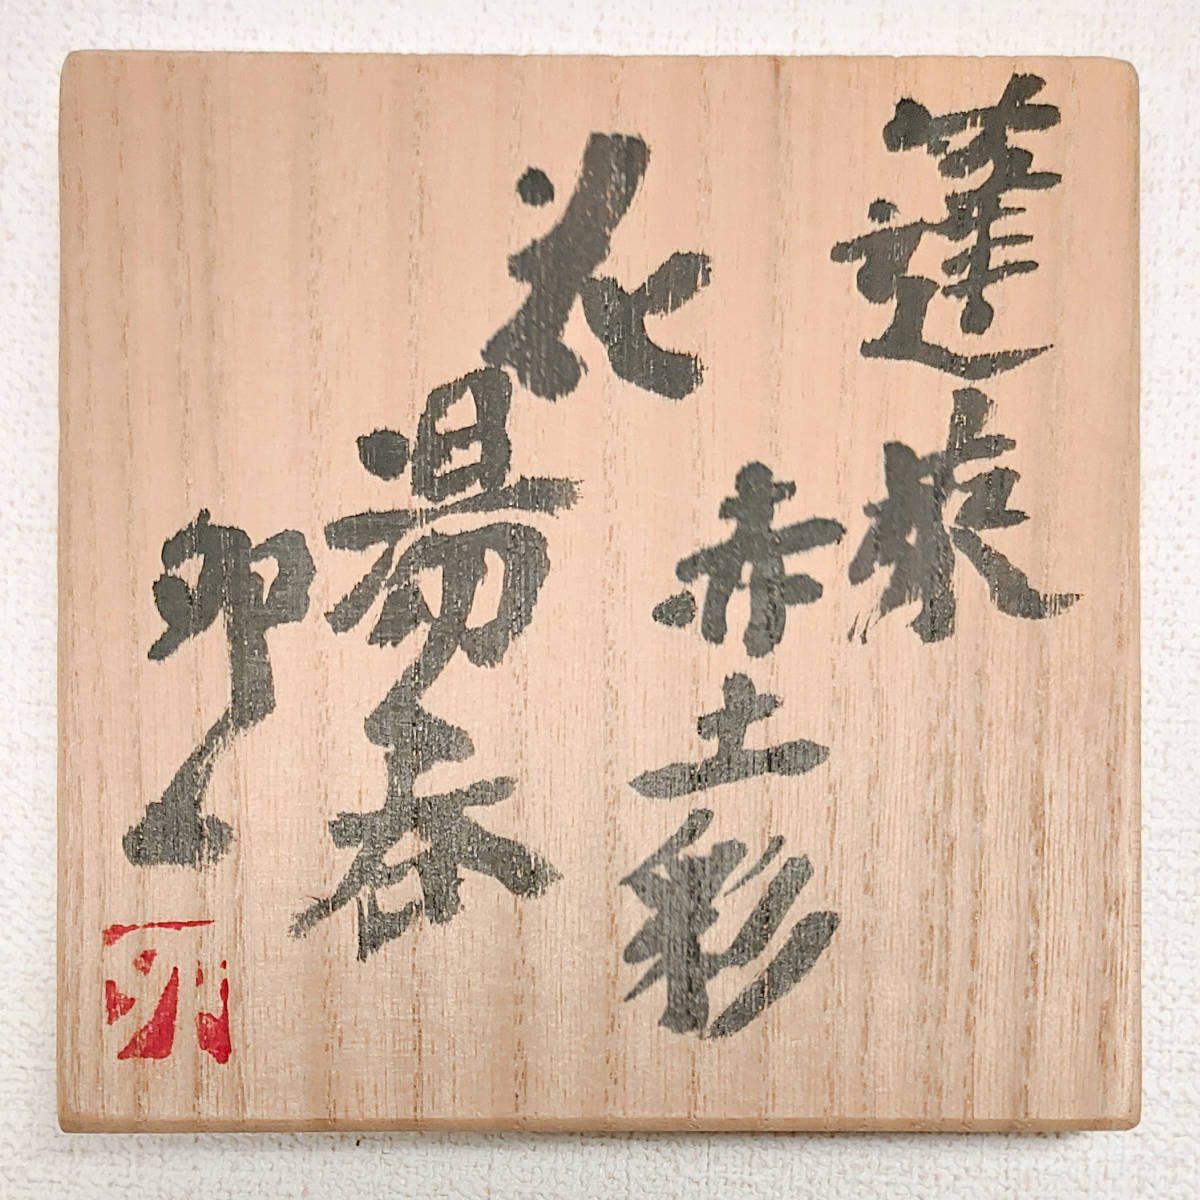 蓬莱
赤土彩
花
湯呑
卯一
卯